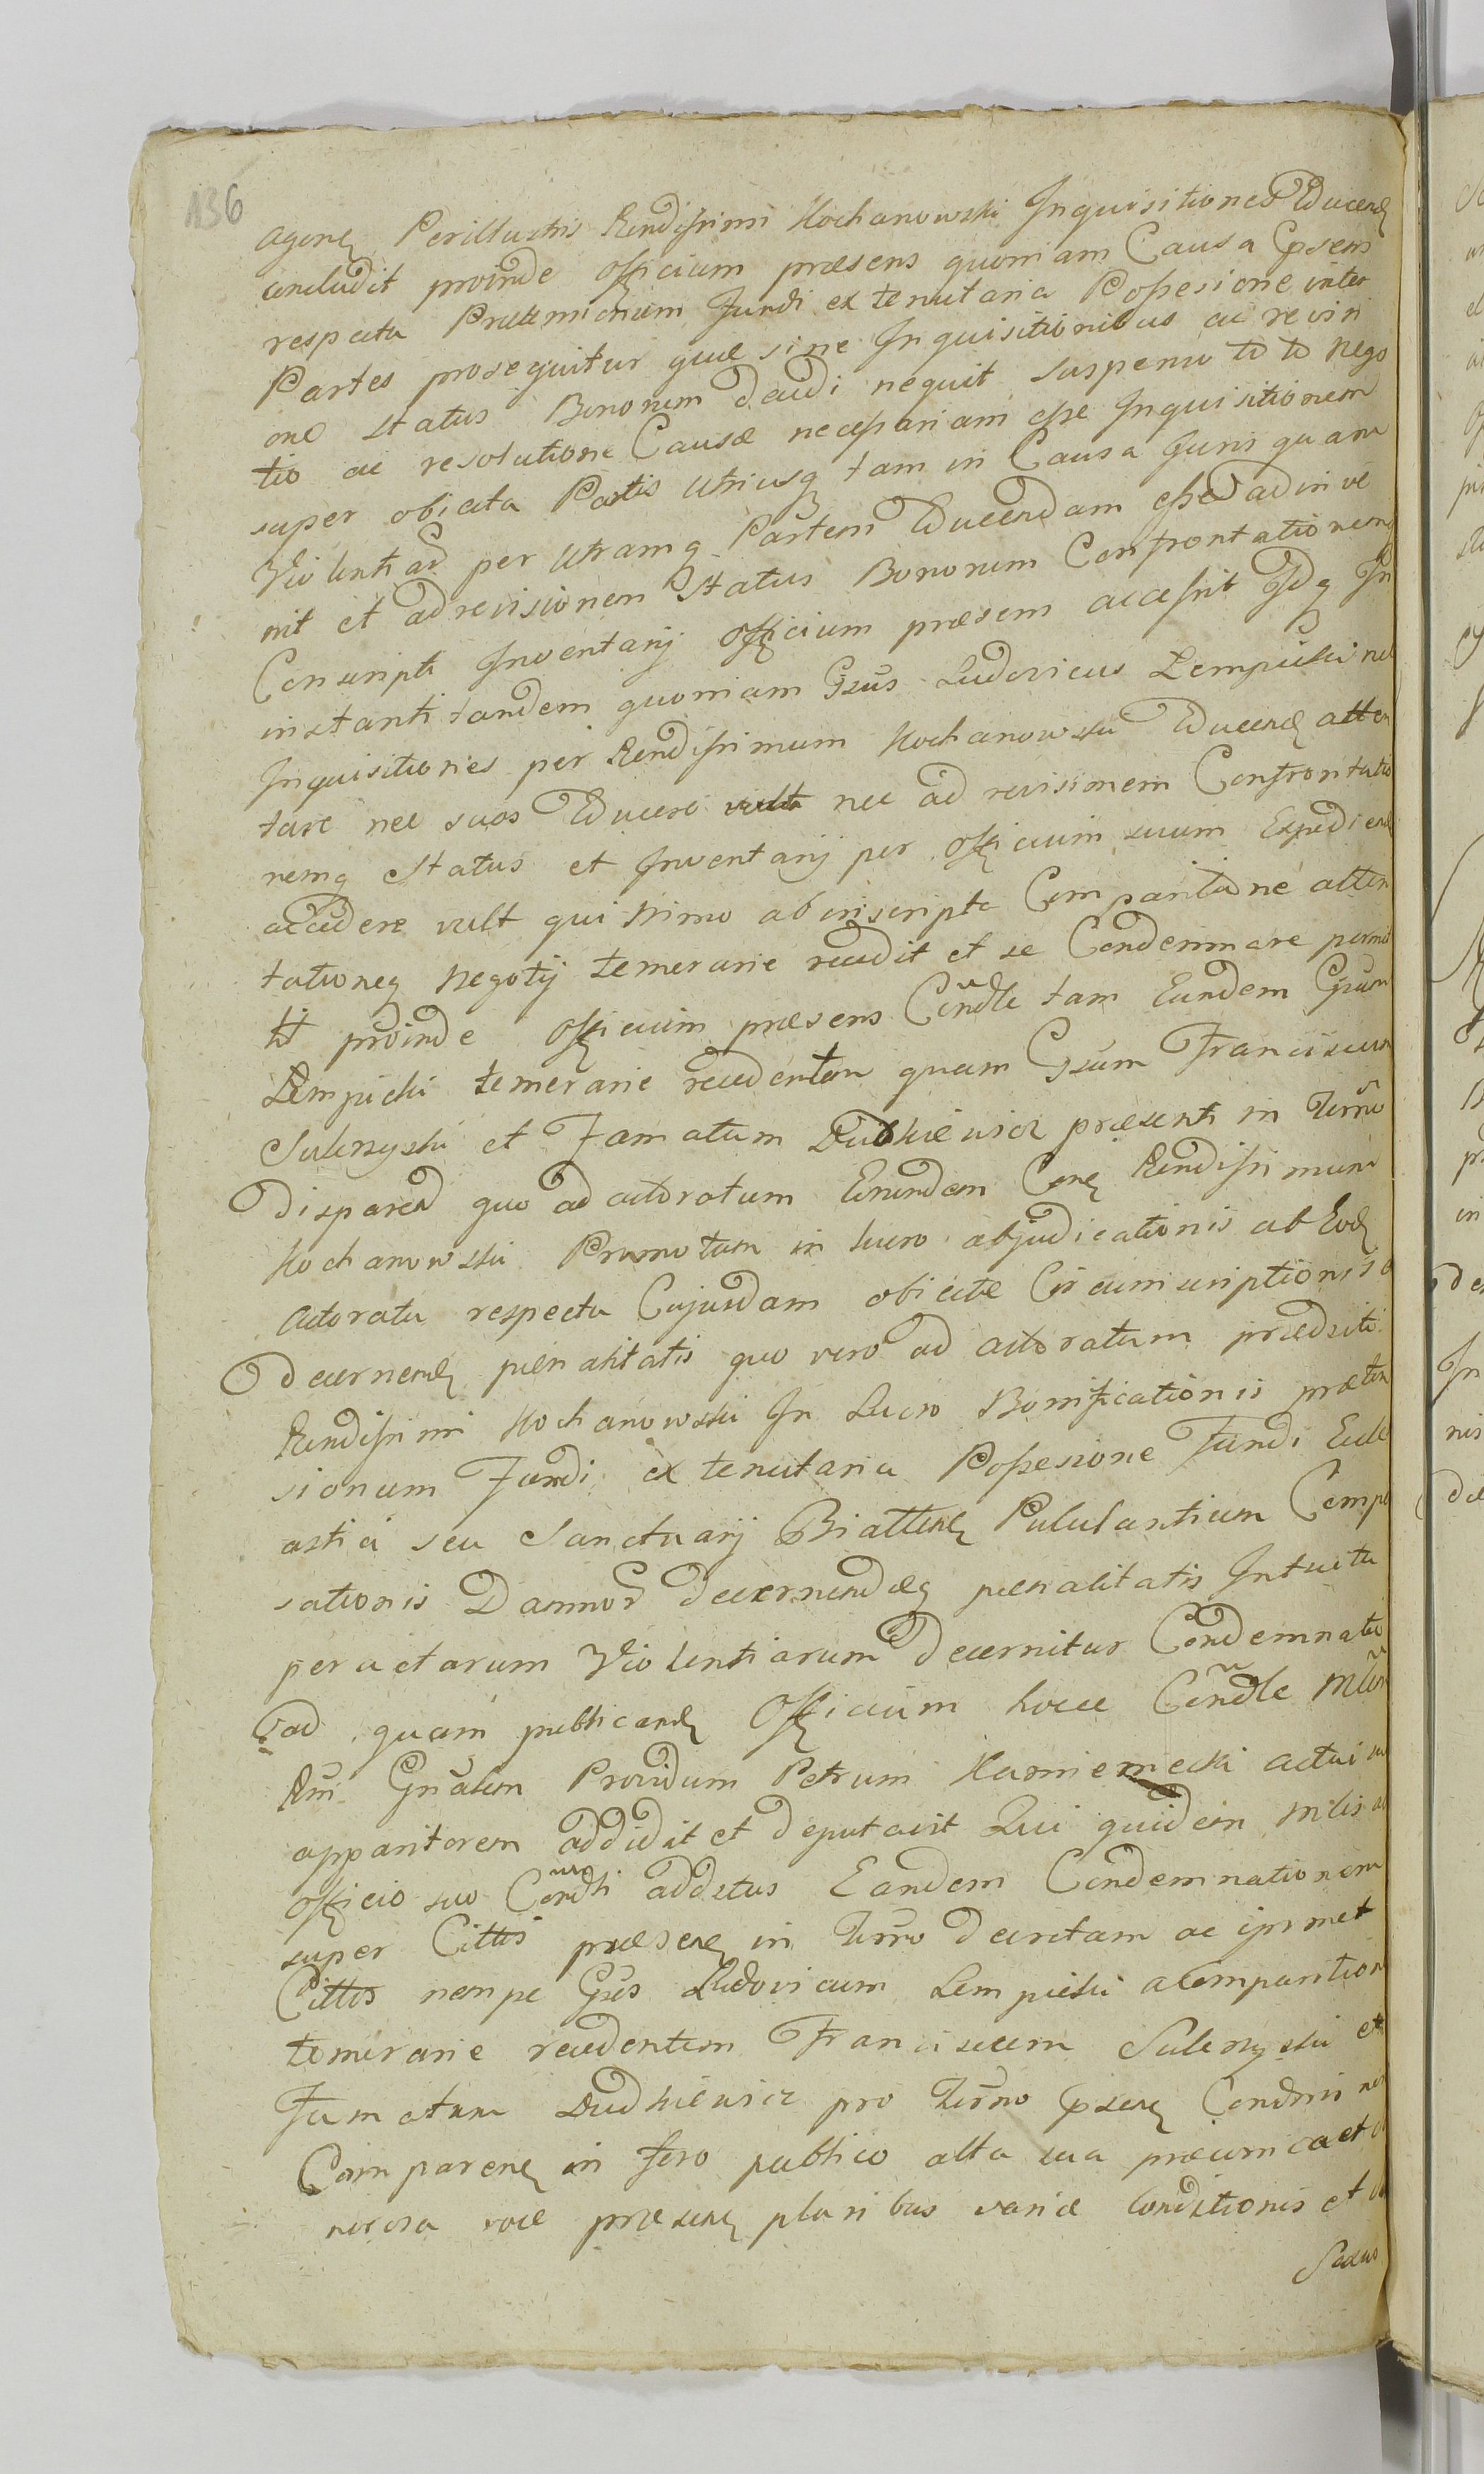 136
agen Perillustris Rendissimi Kochanowski Inquisitiones Educend
concludit proinde Officium præsens quoniam Causa Præsens
respectu Prætensionum Fundi ex tenutaria Possesione inter
Partes prosequitur quæ sine Inquisitionibus ac revisi
one status Bonorum decidi nequit suspenso toto nego
tio ac resolutione Causæ necessariam esse Inquisitionem
super obiecta Partis Utriusq tam in Causa Juris quam
Violentiar per Utramq Partem Educendam esse adinve
nit et ad revisionem Status Bonorum Confrontationem
Conscripti Inventarij Officium præsens accessit Idq In
instanti tandem quoniam Gsus Ludovicus Lempicki nec
Inquisitiones per Rendissimum Kochanowski Educend atten
tare nec suos Educere vult nec ad revisionem Confrontatio
nemq Status et Inventarij per Officium suum Expediend
accedere vult qui nimo ab inscripta Comparitione atten
tationeq Negotij temerarie recedit et se Condemnare permit
tit proinde Officium præsens Cendle tam Eundem Gsum
Lempicki temerarie recedentem quam Gsum Franciscum
Sulenzyski et Famatum Dudkiewicz præsenti in Termo
Disparend quo ad actoratum Eorundem Cone Rendissimum
Kochanowski Promotum in lucro abjudicationis ab Eod
Actoratu respectu Cujusdam obiectæ Circumscriptionis
Decernend pænalitatis quo vero ad actoratum prædicti
Rendissimi Kochanowski In Lucro Bonificationis præten
sionum Fundi ex tenutaria Possesione Fundi Eccle
astici seu Sanctuarij Biatten Pululantium Compe
sationis Damnor decernendæq pænalitatis Intuitu
peractarum Violentiarum decernitur Condemnatio
ad quam publicand Officium hocce Cendle Mlem
Rni Gnalem Providum Petrum Kamieniecki actui suo
apparitorem addidit et deputavit Qui quidem Mlis ab
Officio suo Cendli additus Eandem Condemnationem
super Cittis præsen in Termo decretam ac ipsimet
Cittos nempe Gsos Ludovicum Lempicki a Comparition
temerarie recedentem Franciscum Sulenzyski et
Famatum Dudkiewicz pro Termo Præsen Condnis non
Comparend in foro publico alta sua præconica et
nerosa voce præsen pluribus variæ Conditionis et
Sexus